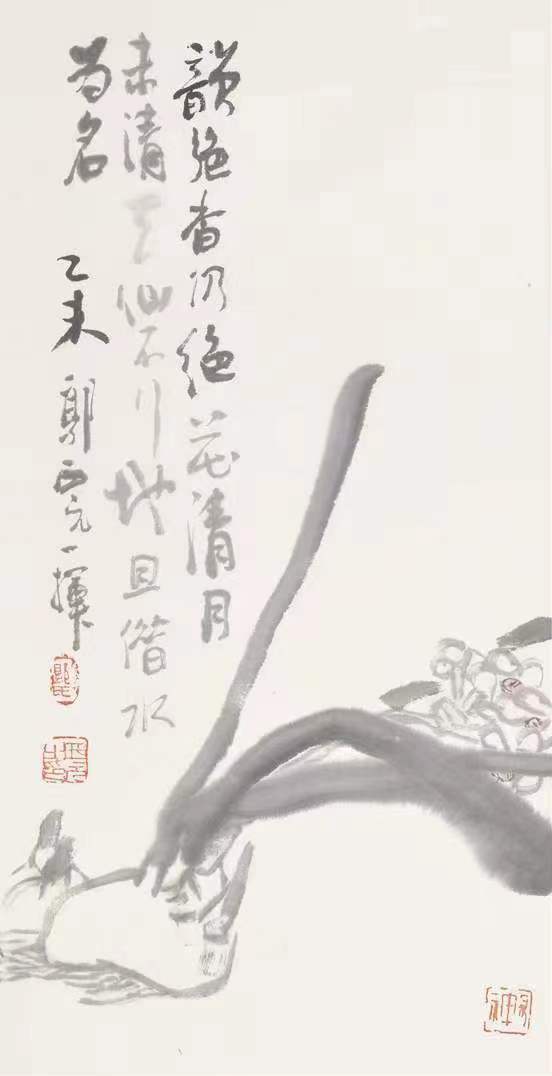 韻絶香仍絶花清月
未清天仙不行地且借水
为名
乙未 郭西元一揮